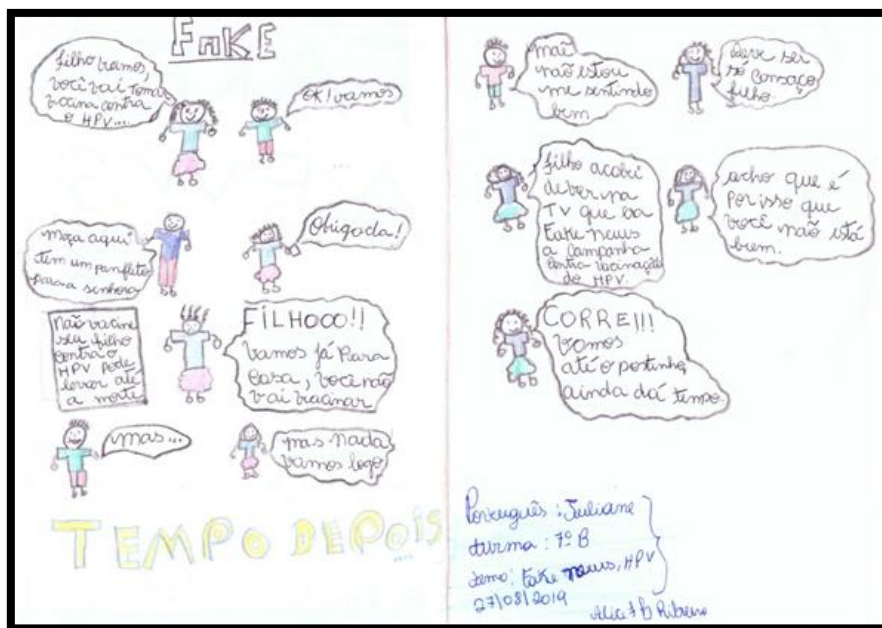 FAKE
filho vamos,
você vai tomar
vacina contra
o HPV...
OK! vamos
...
moça aqui
tem um panfleto
para a senhora
Obrigada!
Não vacine
seu filho
contra o
HPV pode
levar até
a morte
FILHOOO!!
vamos já para
casa, você não
vai vacinar
mas...
mas nada
vamos logo
TEMPO DEPOIS
....
mãe
não estou
me sentindo
bem
deve ser
só cansaço
filho.
filho acabei
de ver na
TV que era
Fake news
a campanha
contra vacinação
do HPV.
acho que é
por isso que
você não está
bem.
CORRE!!!
vamos
até o postinho,
ainda dá tempo.
Português: Juliane
turma: 7º B
tema: Fake news, HPV
27/08/2019
Alice B Ribeiro